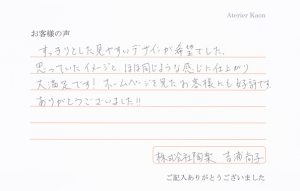 Atelier Kaon
お客様の声
すっきりとした見やすいデザインが希望でした。
思っていたイメージと ほぼ同じような感じに仕上がり
大満足です！ホームページを見たお客様にも好評です。
ありがとうございました!!
株式会社陶楽 吉浦尚子
ご記入ありがとうございました